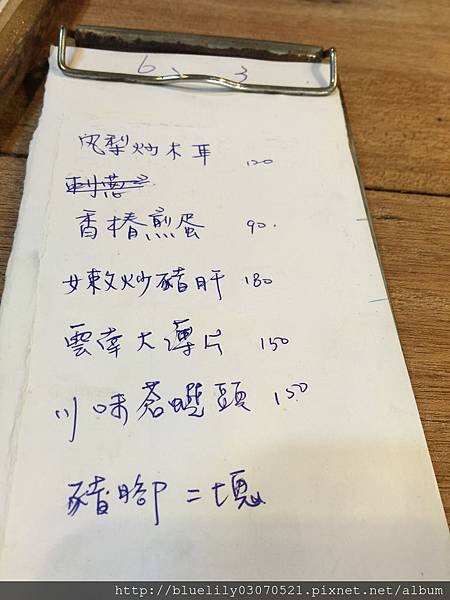 6、3
鳳梨炒木耳 120
香椿煎蛋 90.
女敕炒豬肝 180
雲南大薄片 150
川味蒼蠅頭 150
豬腳二塊
http://bluelily03070521.pixnet.net/album